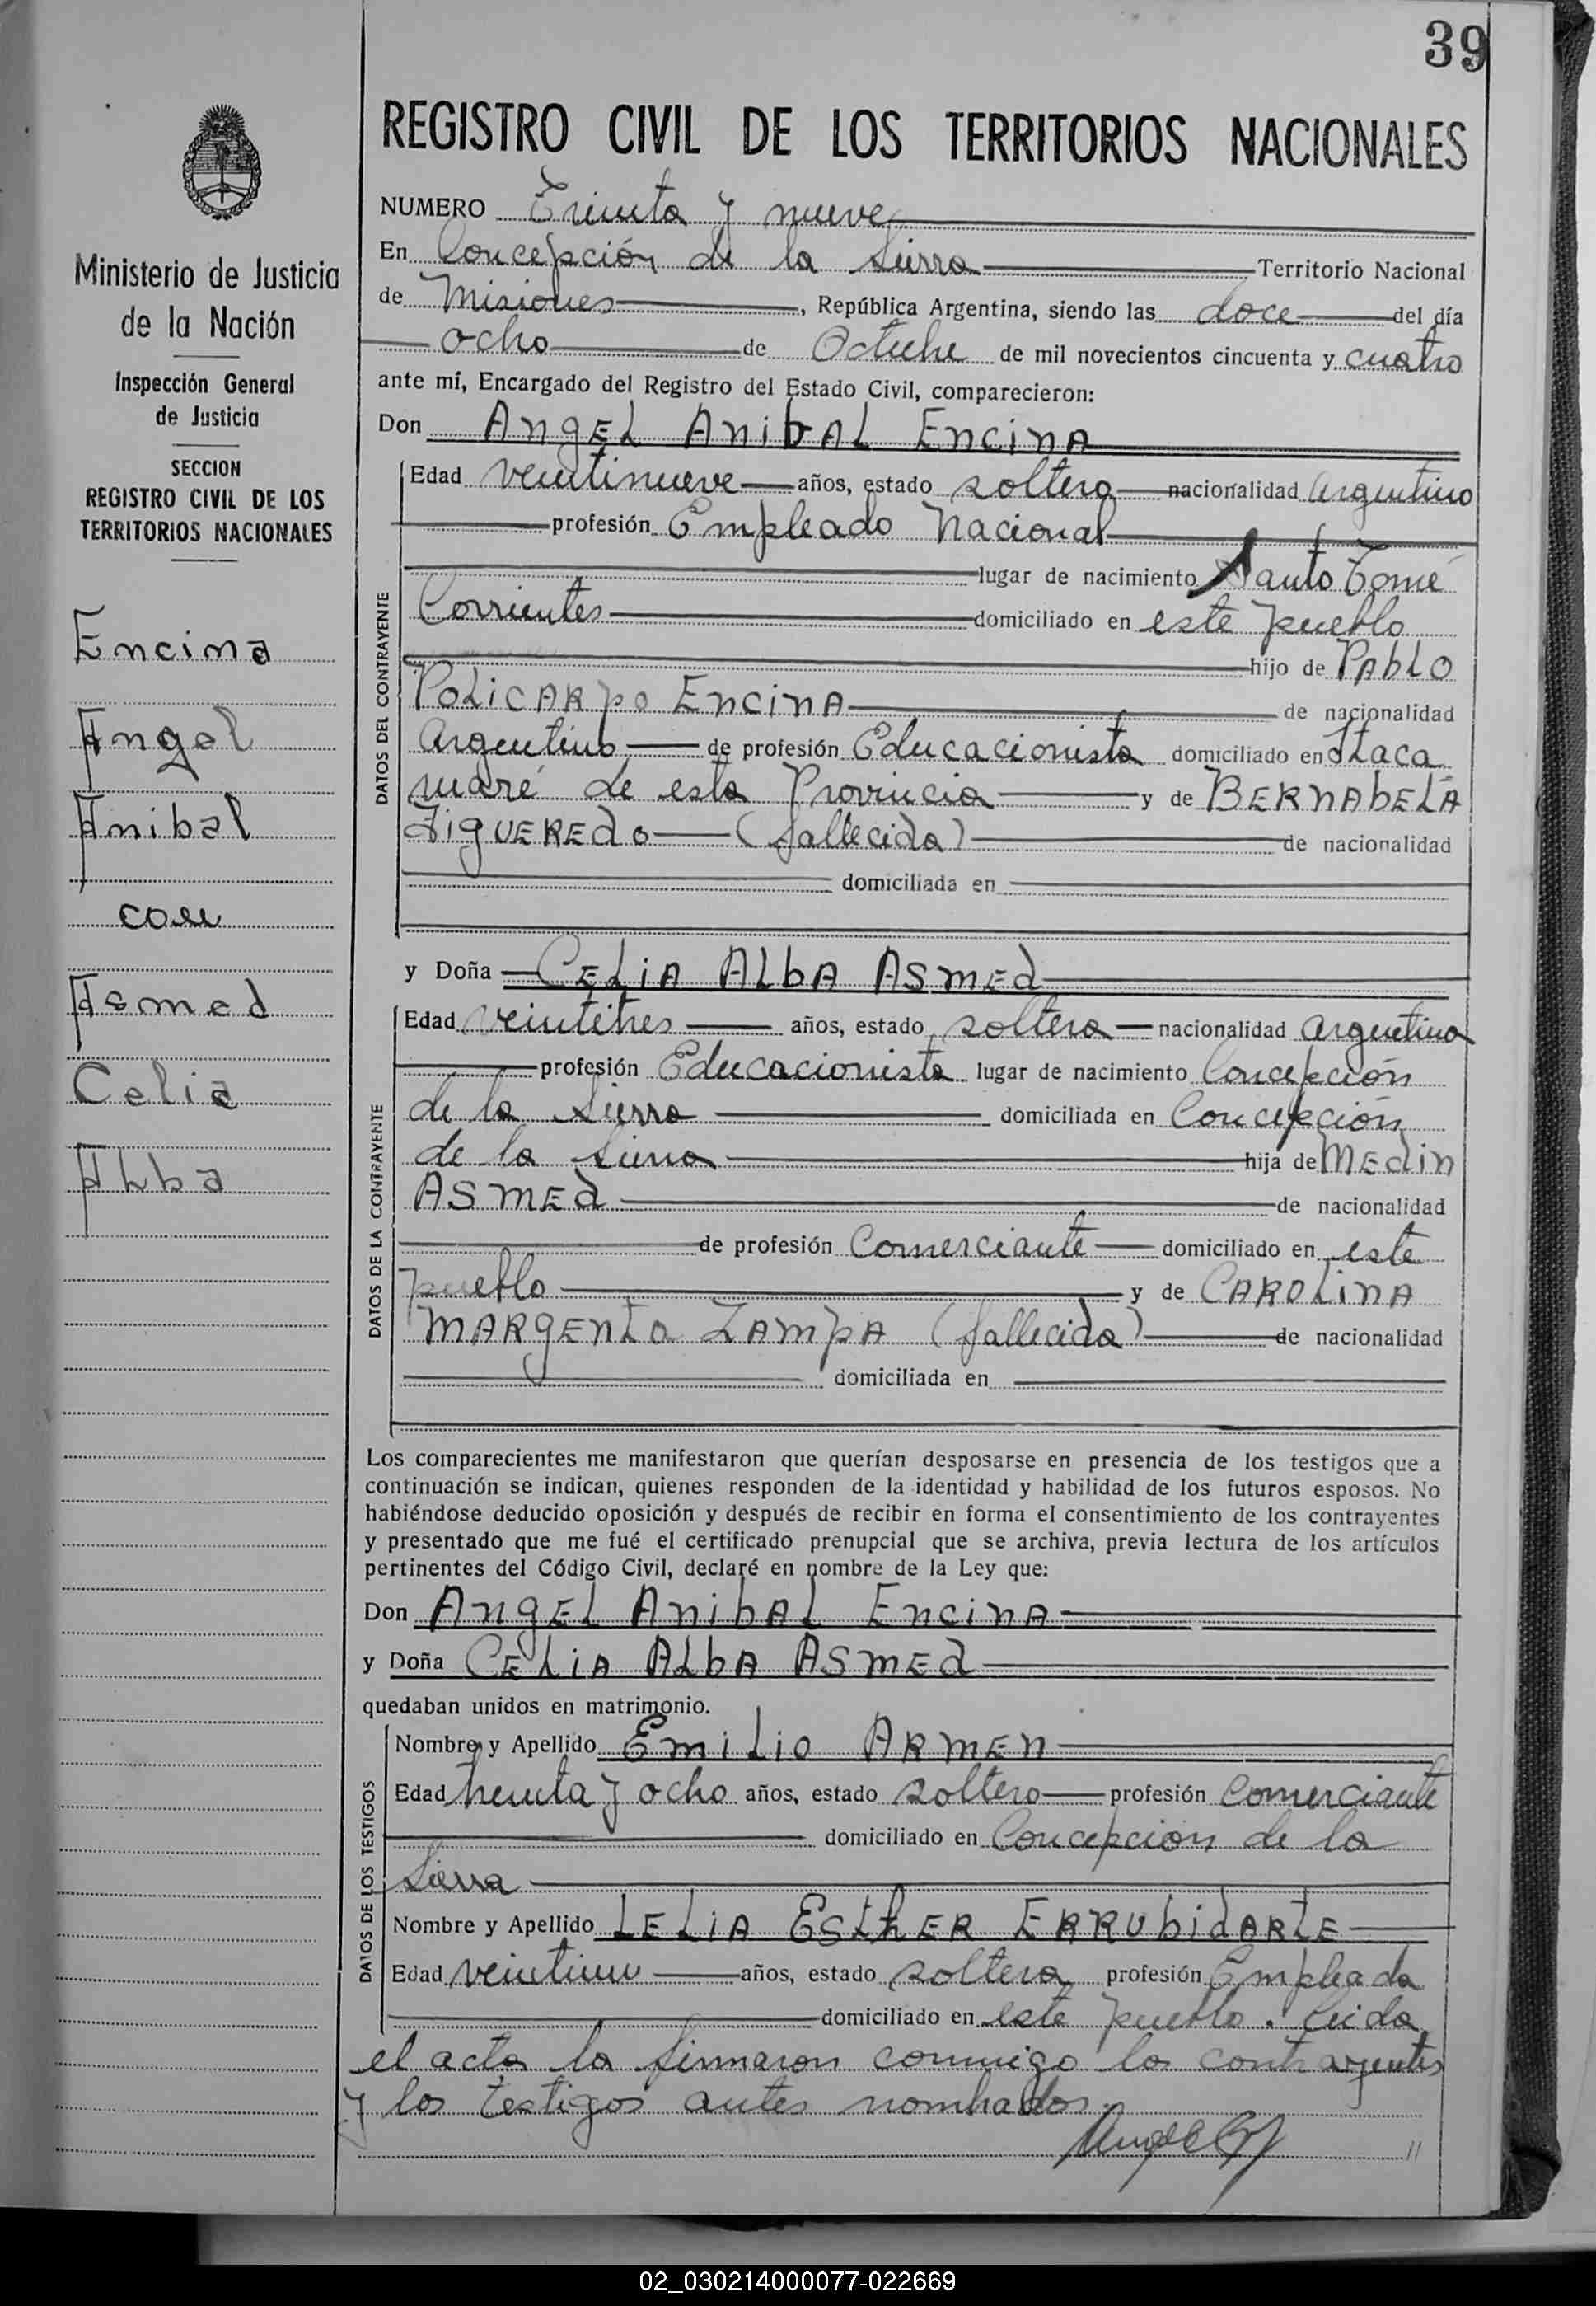 39
REGISTRO CIVIL DE LOS TERRITORIOS NACIONALES
Ministerio de Justicia
de la Nación
Inspección General
de Justicia
SECCION
REGISTRO CIVIL DE LOS
TERRITORIOS NACIONALES
Encina
Angel
Anibal
con
Asmed
Celia
Alba
NUMERO Treinta y nueve
En Concepción de la Sierra Territorio Nacional
de Misiones, República Argentina, siendo las doce del día
ocho de Octubre de mil novecientos cincuenta y cuatro
ante mí, Encargado del Registro del Estado Civil, comparecieron:
Don Angel Anibal Encina
DATOS DEL CONTRAYENTE
Edad veintinueve años, estado soltero nacionalidad argentino
profesión Empleado Nacional
lugar de nacimiento Santo Tomé
Corrientes domiciliado en este pueblo
hijo de Pablo
Policarpo Encina de nacionalidad
argentino de profesión Educacionista domiciliado en Itaca
ruaré de esta Provincia y de Bernabela
Figueredo (fallecida) de nacionalidad
domiciliada en
y Doña Celia Alba Asmed
DATOS DE LA CONTRAYENTE
Edad veintitres años, estado soltera nacionalidad argentina
profesión Educacionista lugar de nacimiento Concepción
de la Sierra domiciliada en Concepción
de la Sierra hija de Medin
Asmed de nacionalidad
de profesión Comerciante domiciliado en este
pueblo y de Carolina
Margenta Zampa (fallecida) de nacionalidad
domiciliada en
Los comparecientes me manifestaron que querían desposarse en presencia de los testigos que a
continuación se indican, quienes responden de la identidad y habilidad de los futuros esposos. No
habiéndose deducido oposición y después de recibir en forma el consentimiento de los contrayentes
y presentado que me fué el certificado prenupcial que se archiva, previa lectura de los artículos
pertinentes del Código Civil, declaré en nombre de la Ley que:
Don Angel Anibal Encina
y Doña Celia Alba Asmed
quedaban unidos en matrimonio.
DATOS DE LOS TESTIGOS
Nombre y Apellido Emilio Armen
Edad treinta y ocho años, estado soltero profesión Comerciante
domiciliado en Concepción de la
Sierra
Nombre y Apellido Lelia Esther Errubidarte
Edad veintiun años, estado soltera profesión Empleada
domiciliado en este pueblo. Leida
el acta la firmaron conmigo los contrayentes
y los testigos antes nombrados.
//
02_030214000077-022669